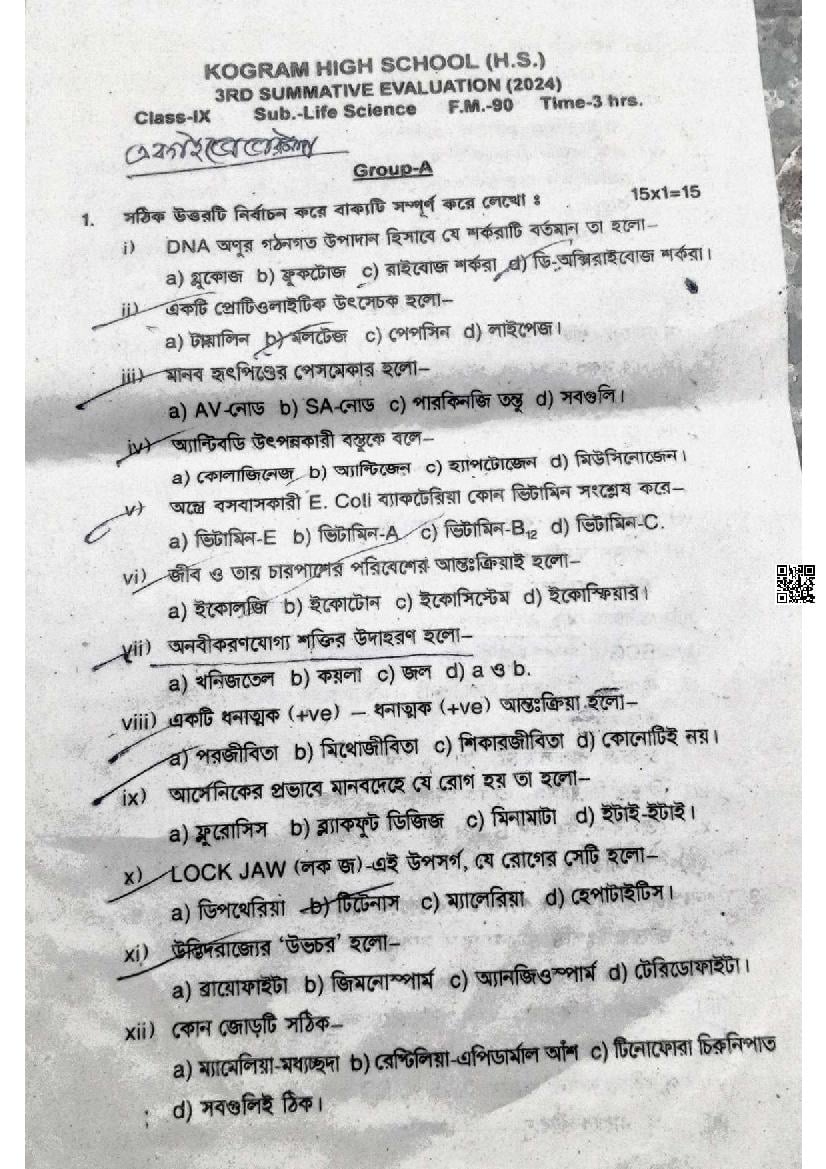 KOGRAM HIGH SCHOOL (H.S.)
3RD SUMMATIVE EVALUATION (2024)
Class-IX Sub.-Life Science F.M.-90 Time-3 hrs.
Group-A
1. সঠিক উত্তরটি নির্বাচন করে বাক্যটি সম্পূর্ণ করে লেখো ঃ 15x1=15
i) DNA অণুর গঠনগত উপাদান হিসাবে যে শর্করাটি বর্তমান তা হলো–
a) গ্লুকোজ b) ফ্রুকটোজ c) রাইবোজ শর্করা d) ডি-অক্সিরাইবোজ শর্করা।
ii) একটি প্রোটিওলাইটিক উৎসেচক হলো–
a) টায়ালিন b) মলটেজ c) পেপসিন d) লাইপেজ।
iii) মানব হৃৎপিণ্ডের পেসমেকার হলো–
a) AV-নোড b) SA-নোড c) পারকিনজি তন্তু d) সবগুলি।
iv) অ্যান্টিবডি উৎপন্নকারী বস্তুকে বলে–
a) কোলাজিনেজ b) অ্যান্টিজেন c) হ্যাপটোজেন d) মিউসিলোজেন।
v) অন্ত্রে বসবাসকারী E. Coli ব্যাকটেরিয়া কোন ভিটামিন সংশ্লেষ করে–
a) ভিটামিন-E b) ভিটামিন-A c) ভিটামিন-B₁₂ d) ভিটামিন-C.
vi) জীব ও তার চারপাশের পরিবেশের আন্তঃক্রিয়াই হলো–
a) ইকোলজি b) ইকোটোন c) ইকোসিস্টেম d) ইকোস্ফিয়ার।
vii) অনবীকরণযোগ্য শক্তির উদাহরণ হলো–
a) খনিজতেল b) কয়লা c) জল d) a ও b.
viii) একটি ধনাত্মক (+ve) – ধনাত্মক (+ve) আন্তঃক্রিয়া হলো–
a) পরজীবিতা b) মিথোজীবিতা c) শিকারজীবিতা d) কোনোটিই নয়।
ix) আর্সেনিকের প্রভাবে মানবদেহে যে রোগ হয় তা হলো–
a) ফ্লুরোসিস b) ব্ল্যাকফুট ডিজিজ c) মিনামাটা d) ইটাই-ইটাই।
x) LOCK JAW (লক জ)-এই উপসর্গ, যে রোগের সেটি হলো–
a) ডিপথেরিয়া b) টিটেনাস c) ম্যালেরিয়া d) হেপাটাইটিস।
xi) উদ্ভিদরাজ্যের ‘উভচর’ হলো–
a) ব্রায়োফাইটা b) জিমনোস্পার্ম c) অ্যানজিওস্পার্ম d) টেরিডোফাইটা।
xii) কোন জোড়টি সঠিক–
a) ম্যামেলিয়া-মধ্যচ্ছদা b) রেপ্টিলিয়া-এপিডার্মাল আঁশ c) টিনোফোরা চিরুনিপাত
d) সবগুলিই ঠিক।